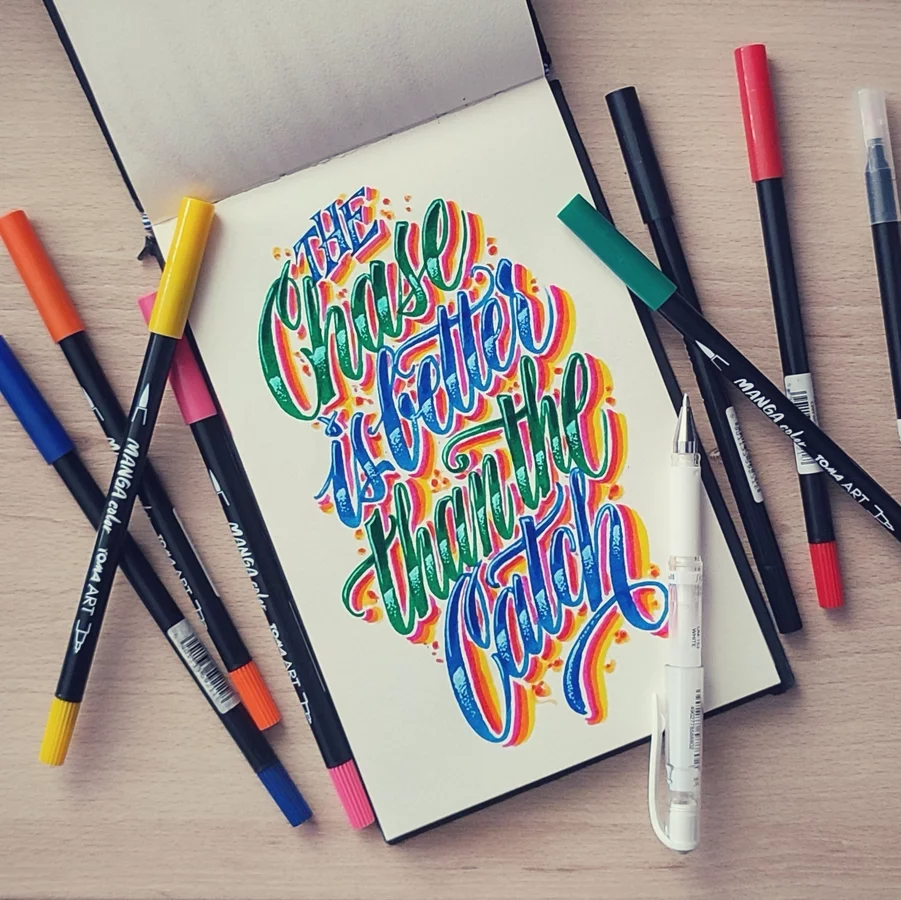 THE
Chase
is better
than the
Catch
MANGA color TOMA ART
MANGA color TOMA ART
MANGA color TOMA ART
TOMA ART
TOMA ART
WHITE